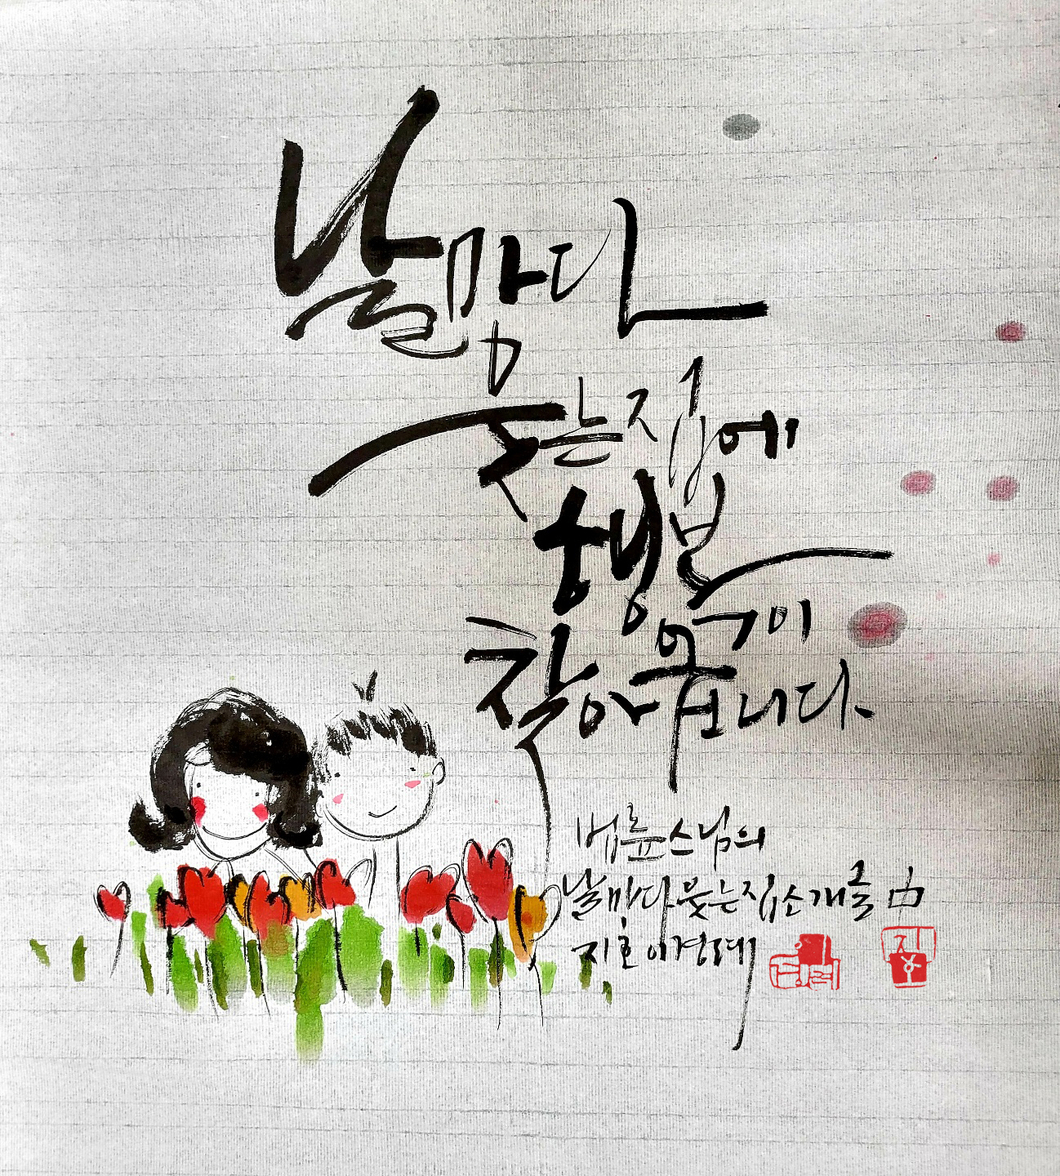 날마다
웃는집에
행복이
찾아옵니다
법륜스님의
날마다웃는집소개글 中
지호 이경례
경례
지호